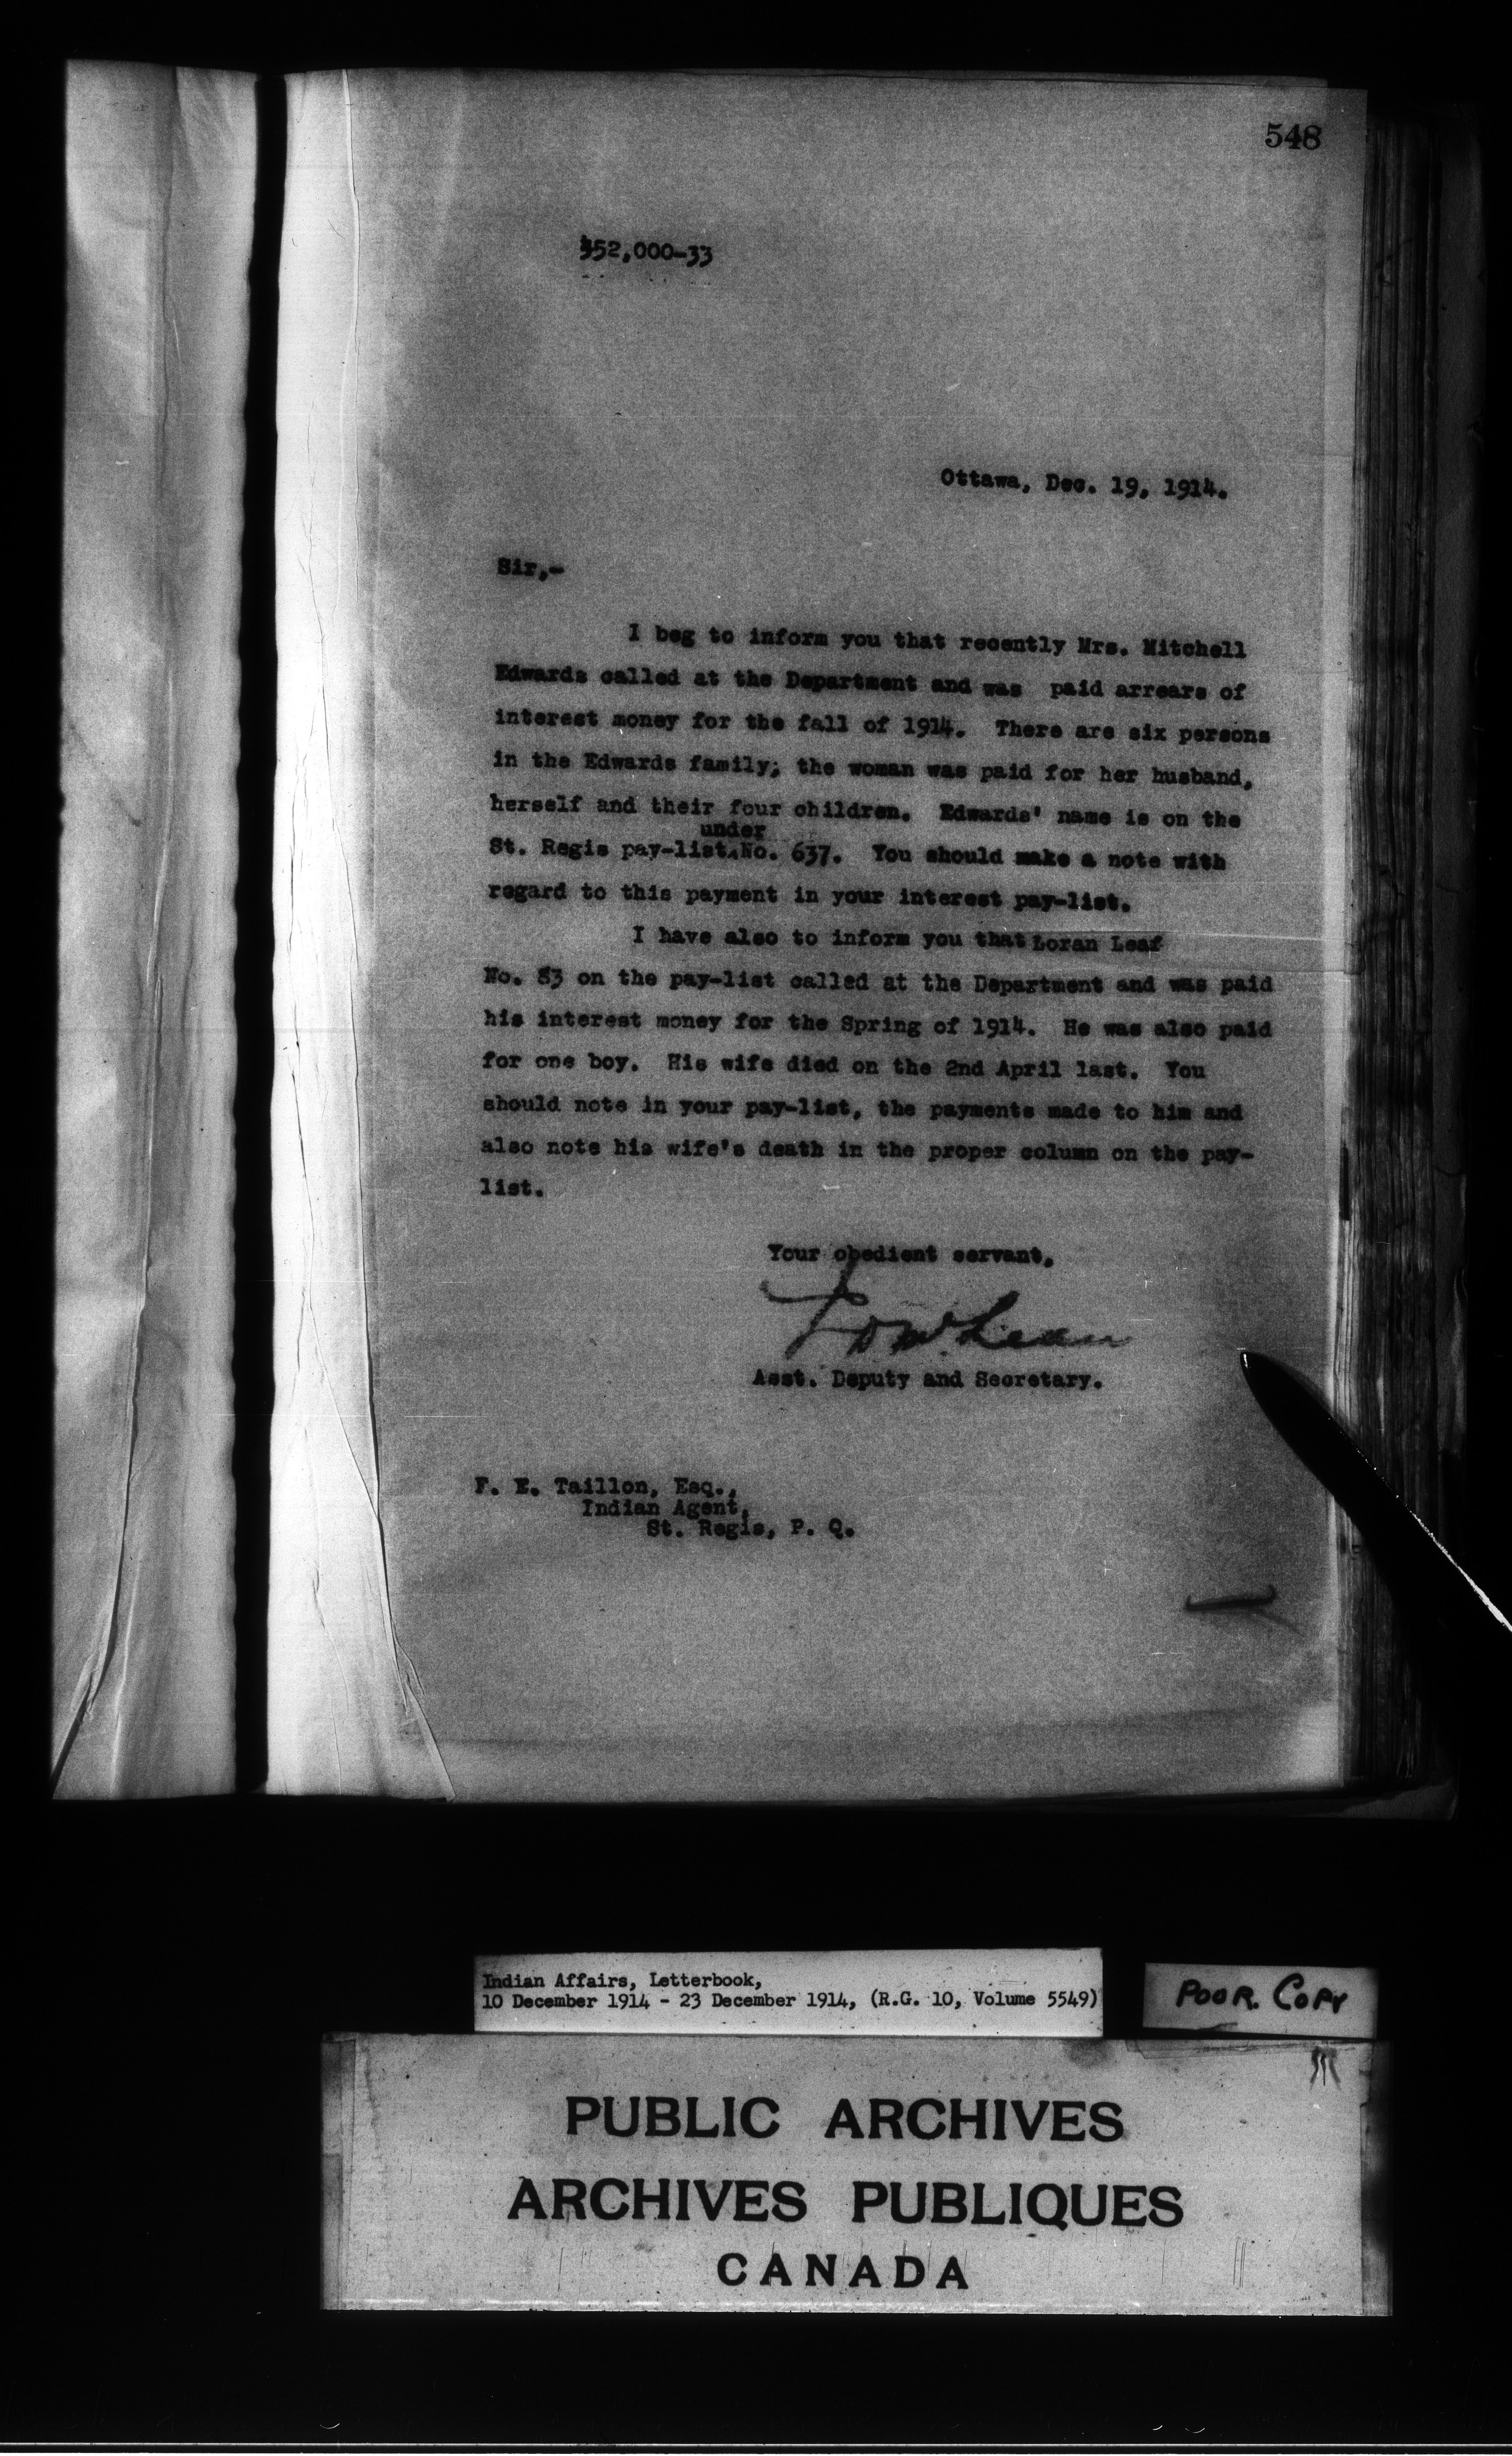 548
452,000-33
Ottawa, Dec. 19, 1914.
Sir,-
I beg to inform you that recently Mrs. Mitchell
Edwards called at the Department and was paid arrears of
interest money for the fall of 1914. There are six persons
in the Edwards family; the woman was paid for her husband,
herself and their four children. Edwards' name is on the
under
St. Regis pay-list No. 637. You should make a note with
regard to this payment in your interest pay-list.
I have also to inform you that Loran Leaf
No. 83 on the pay-list called at the Department and was paid
his interest money for the Spring of 1914. He was also paid
for one boy. His wife died on the 2nd April last. You
should note in your pay-list, the payments made to him and
also note his wife's death in the proper column on the pay-
list.
Your obedient servant,
J D McLean
Asst. Deputy and Secretary.
F. E. Taillon, Esq.,
Indian Agent,
St. Regis, P. Q.
Indian Affairs, Letterbook,
10 December 1914 - 23 December 1914, (R.G. 10, Volume 5549)
POOR. COPY
PUBLIC ARCHIVES
ARCHIVES PUBLIQUES
CANADA